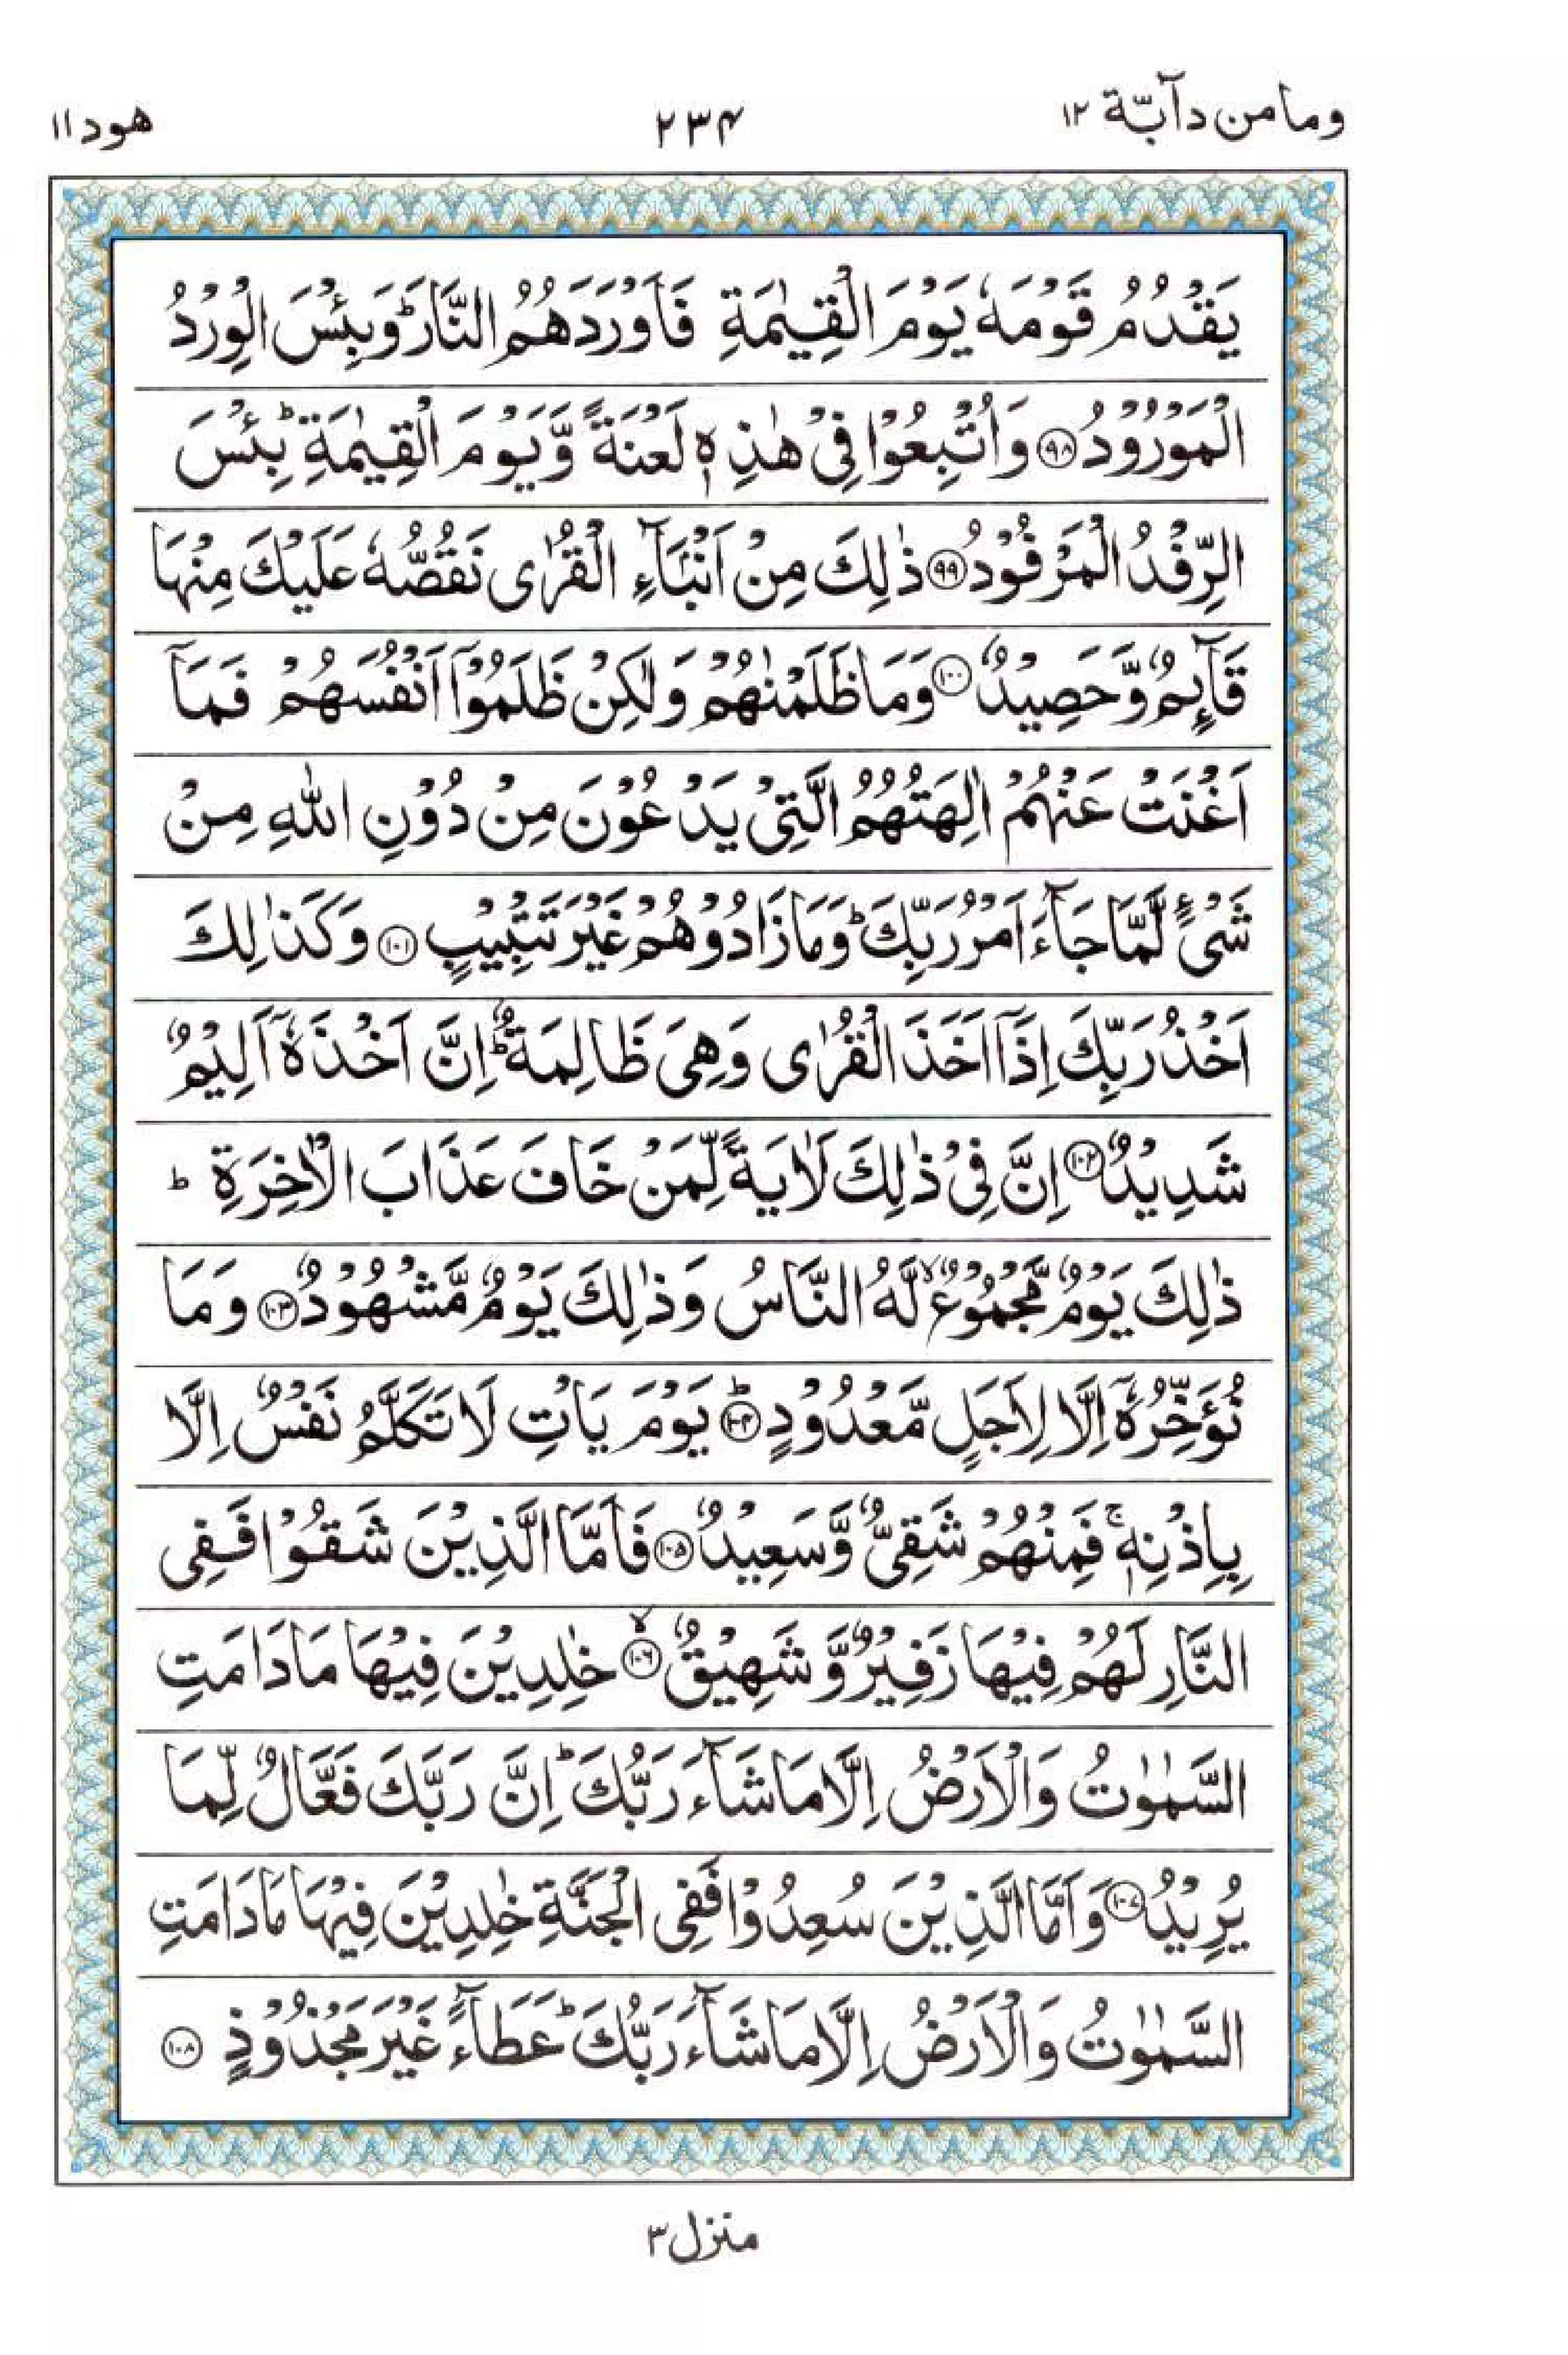 وما من دآبّة ١٢
٢٣٤
هود ١١
يَقْدُمُ قَوْمَهٗ يَوْمَ الْقِيٰمَةِ فَاَوْرَدَهُمُ النَّارَ ؕ وَبِئْسَ الْوِرْدُ
الْمَوْرُوْدُ ﴿٩٨﴾ وَاُتْبِعُوْا فِىْ هٰذِهٖ لَعْنَةً وَّيَوْمَ الْقِيٰمَةِ ؕ بِئْسَ
الرِّفْدُ الْمَرْفُوْدُ ﴿٩٩﴾ ذٰلِكَ مِنْ اَنْۢبَآءِ الْقُرٰى نَقُصُّهٗ عَلَيْكَ مِنْهَا
قَآئِمٌ وَّحَصِيْدٌ ﴿١٠٠﴾ وَمَا ظَلَمْنٰهُمْ وَلٰكِنْ ظَلَمُوْۤا اَنْفُسَهُمْ فَمَاۤ
اَغْنَتْ عَنْهُمْ اٰلِهَتُهُمُ الَّتِىْ يَدْعُوْنَ مِنْ دُوْنِ اللّٰهِ مِنْ
شَىْءٍ لَّمَّا جَآءَ اَمْرُ رَبِّكَ ؕ وَمَا زَادُوْهُمْ غَيْرَ تَتْبِيْبٍ ﴿١٠١﴾ وَكَذٰلِكَ
اَخْذُ رَبِّكَ اِذَاۤ اَخَذَ الْقُرٰى وَهِىَ ظَالِمَةٌ ؕ اِنَّ اَخْذَهٗۤ اَلِيْمٌ
شَدِيْدٌ ﴿١٠٢﴾ اِنَّ فِىْ ذٰلِكَ لَاٰيَةً لِّمَنْ خَافَ عَذَابَ الْاٰخِرَةِ ؕ
ذٰلِكَ يَوْمٌ مَّجْمُوْعٌ ۙ لَّهُ النَّاسُ وَذٰلِكَ يَوْمٌ مَّشْهُوْدٌ ﴿١٠٣﴾ وَمَا
نُؤَخِّرُهٗۤ اِلَّا لِاَجَلٍ مَّعْدُوْدٍ ؕ ﴿١٠٤﴾ يَوْمَ يَاْتِ لَا تَكَلَّمُ نَفْسٌ اِلَّا
بِاِذْنِهٖ ۚ فَمِنْهُمْ شَقِىٌّ وَّسَعِيْدٌ ﴿١٠٥﴾ فَاَمَّا الَّذِيْنَ شَقُوْا فَفِى
النَّارِ لَهُمْ فِيْهَا زَفِيْرٌ وَّشَهِيْقٌ ۙ ﴿١٠٦﴾ خٰلِدِيْنَ فِيْهَا مَا دَامَتِ
السَّمٰوٰتُ وَالْاَرْضُ اِلَّا مَا شَآءَ رَبُّكَ ؕ اِنَّ رَبَّكَ فَعَّالٌ لِّمَا
يُرِيْدُ ﴿١٠٧﴾ وَاَمَّا الَّذِيْنَ سُعِدُوْا فَفِى الْجَنَّةِ خٰلِدِيْنَ فِيْهَا مَا دَامَتِ
السَّمٰوٰتُ وَالْاَرْضُ اِلَّا مَا شَآءَ رَبُّكَ ؕ عَطَآءً غَيْرَ مَجْذُوْذٍ ﴿١٠٨﴾
منزل ٣